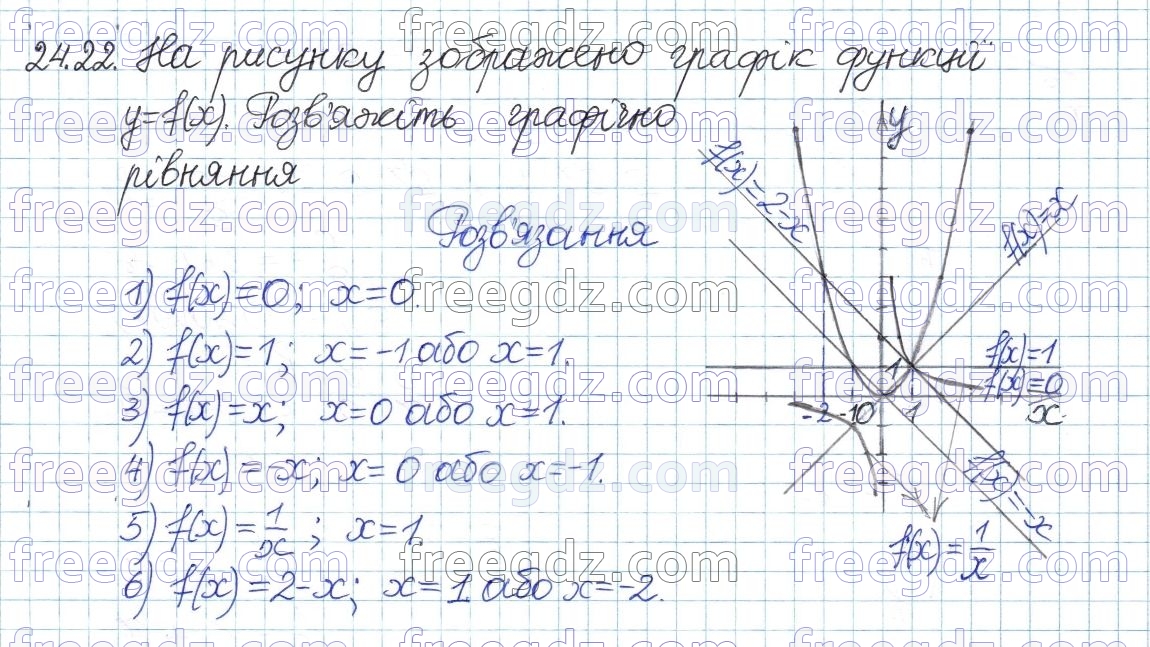 24.22. На рисунку зображено графік функції
y=f(x). Розв'яжіть графічно
рівняння
Розв'язання
1) f(x)=0; x=0.
2) f(x)=1; x=-1 або x=1.
3) f(x)=x; x=0 або x=1.
4) f(x)=-x; x=0 або x=-1.
5) f(x)=1/x; x=1.
6) f(x)=2-x; x=1 або x=-2.
y
f(x)=2-x
f(x)=x
f(x)=1
f(x)=0
1
-2 -1 0 1 x
f(x)=-x
f(x)=1/x
freegdz.com